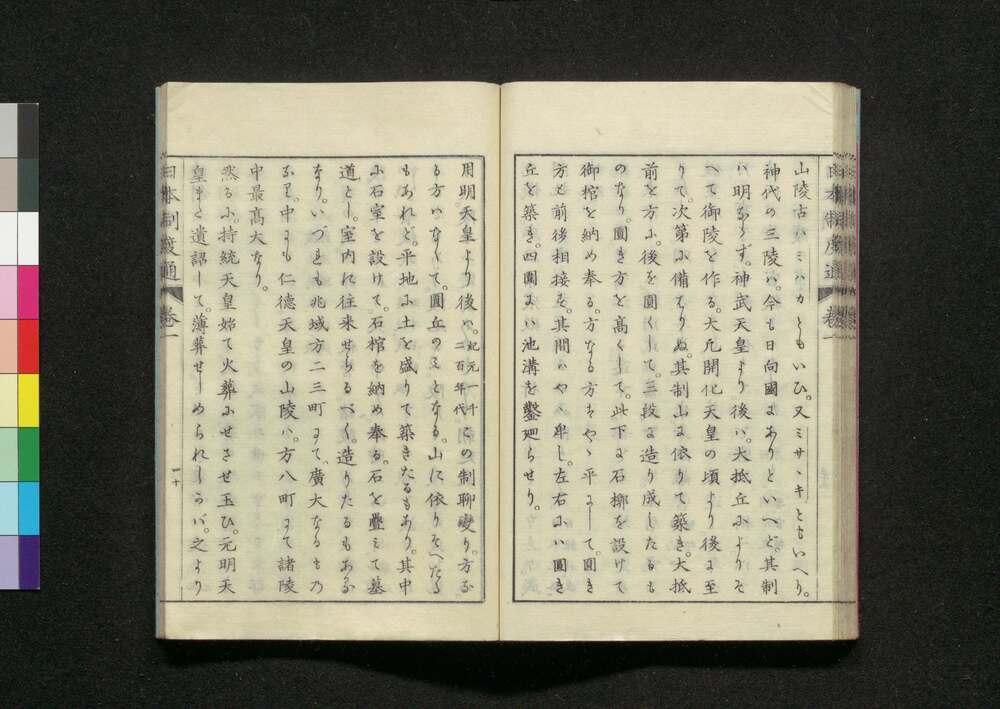 山陵古ハミハカともいひ。又ミサヽキともいへり。
神代の三陵ハ。今も日向國にありといへど。其制
ハ明ならず。神武天皇より後ハ。大抵丘によりそ
へて御陵を作る。大凡開化天皇の頃より後に至
りて。次第に備はりぬ。其制山に依りて築き。大抵
前を方に。後を圓くして。三段に造り成したるも
のなり。圓き方を高くして。此下に石槨を設けて
御棺を納め奉る。方なる方はやゝ平にして。圓き
方と前後相接す。其間ハやゝ卑し。左右にハ圓き
丘を築き。四圍にハ池溝を鑿廻らせり。
用明天皇より後ハ。紀元一千二百年代この制聊變り。方な
る方ハなくて。圓丘のミとなる。山に依りそへたる
もあれど。平地に土を盛りて築きたるもあり。其中
に石室を設けて。石棺を納め奉る。石を疊ミて墓
道とし。室内に往来せらるべく。造りたるもあるな
なり。いづれも兆域方二三町にて。廣大なるもの
なり。中にも仁德天皇の山陵ハ。方八町にて諸陵
中最髙大なり。
然るに。持統天皇始て火葬にせさせ玉ひ。元明天
皇また遺詔して。薄葬せしめられしかバ。之より
日本制度通
卷一
一十
日本制度通
卷一